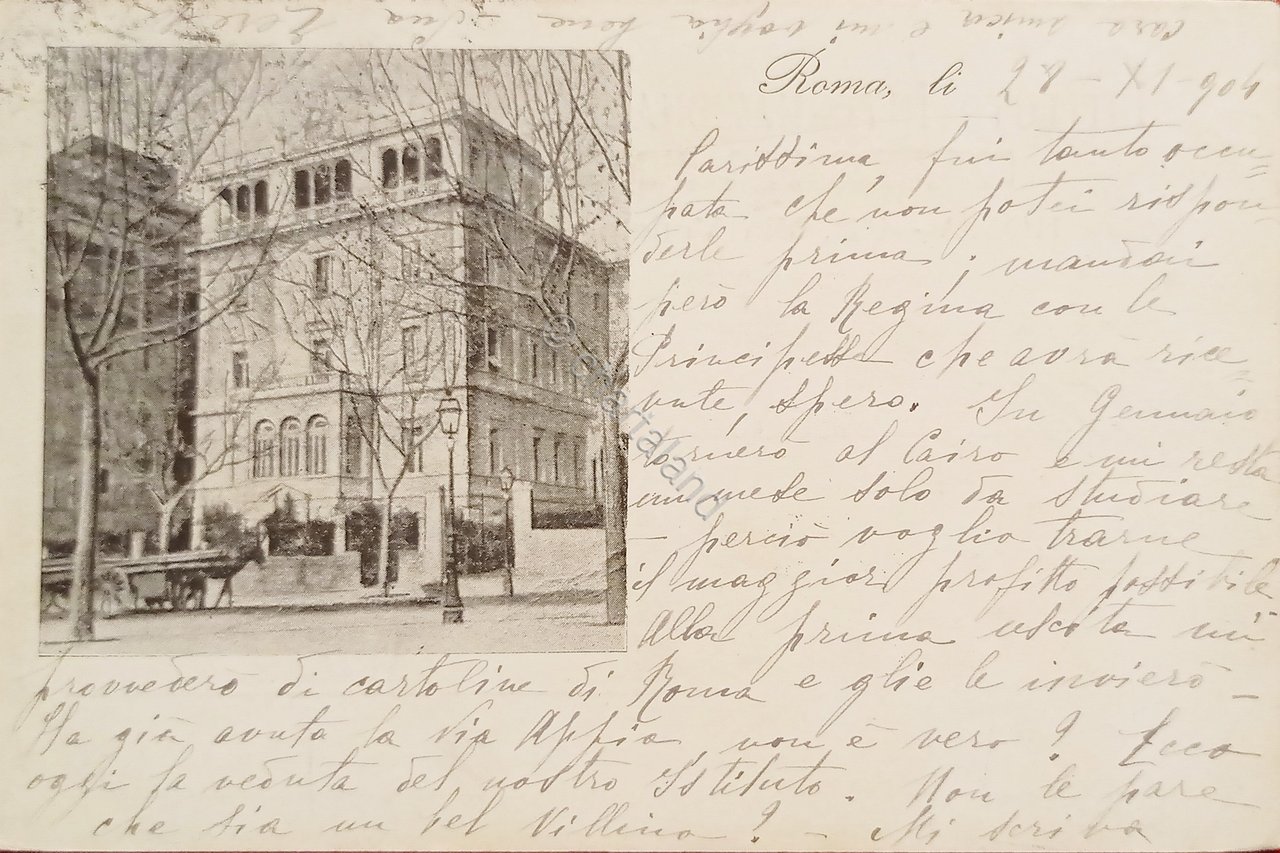 Roma, li 28-XI-904
Carissima, fui tanto occu=
pata che non potei rispon=
derle prima; mandai
però la Regina con le
Principesse che avrà rice=
vute, spero. In Gennaio
tornerò al Cairo e mi resta
un mese solo da studiare
– perciò voglio trarne
il maggior profitto possibile
Alla prima uscita mi
provvederò di cartoline di Roma e glie le invierò –
Ha già avuta la Via Appia, non è vero? Ecco
oggi la veduta del nostro Istituto. Non le pare
che sia un bel Villino? – Mi scriva
cara amica e mi voglia bene Sua
© cartaland